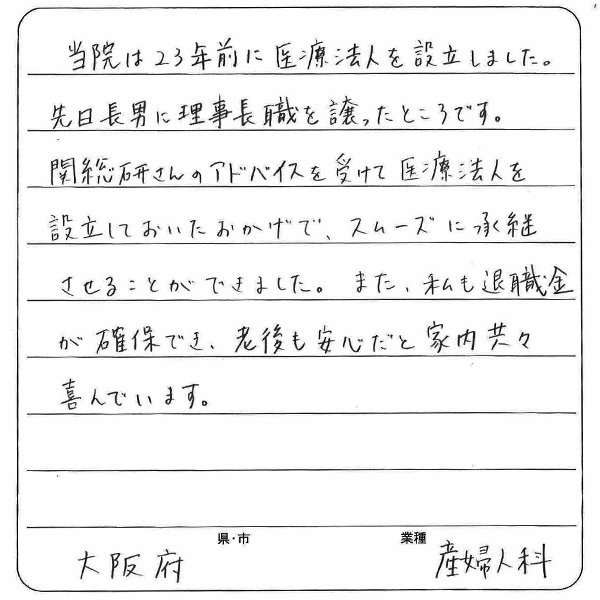 当院は23年前に医療法人を設立しました。
先日長男に理事長職を譲ったところです。
関総研さんのアドバイスを受けて医療法人を
設立しておいたおかげで、スムーズに承継
させることができました。また、私も退職金
が確保でき、老後も安心だと家内共々
喜んでいます。
県・市 業種
大阪府 産婦人科